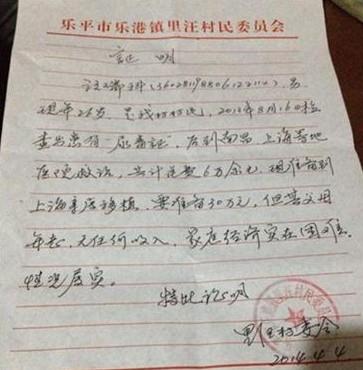 乐平市乐港镇里汪村民委员会
证明
汪 , 男,
现年26岁, 是我村村民, 2013年8月16日检
查出患有"尿毒症", 后到南昌、上海等地
医院救治, 共计花费6万余元, 现准备到
上海 移植, 要准备30万元, 但其父母
年老, 无任何收入, 家庭经济实在困难。
情况属实。
特此证明
里汪村委会
2014.4.4